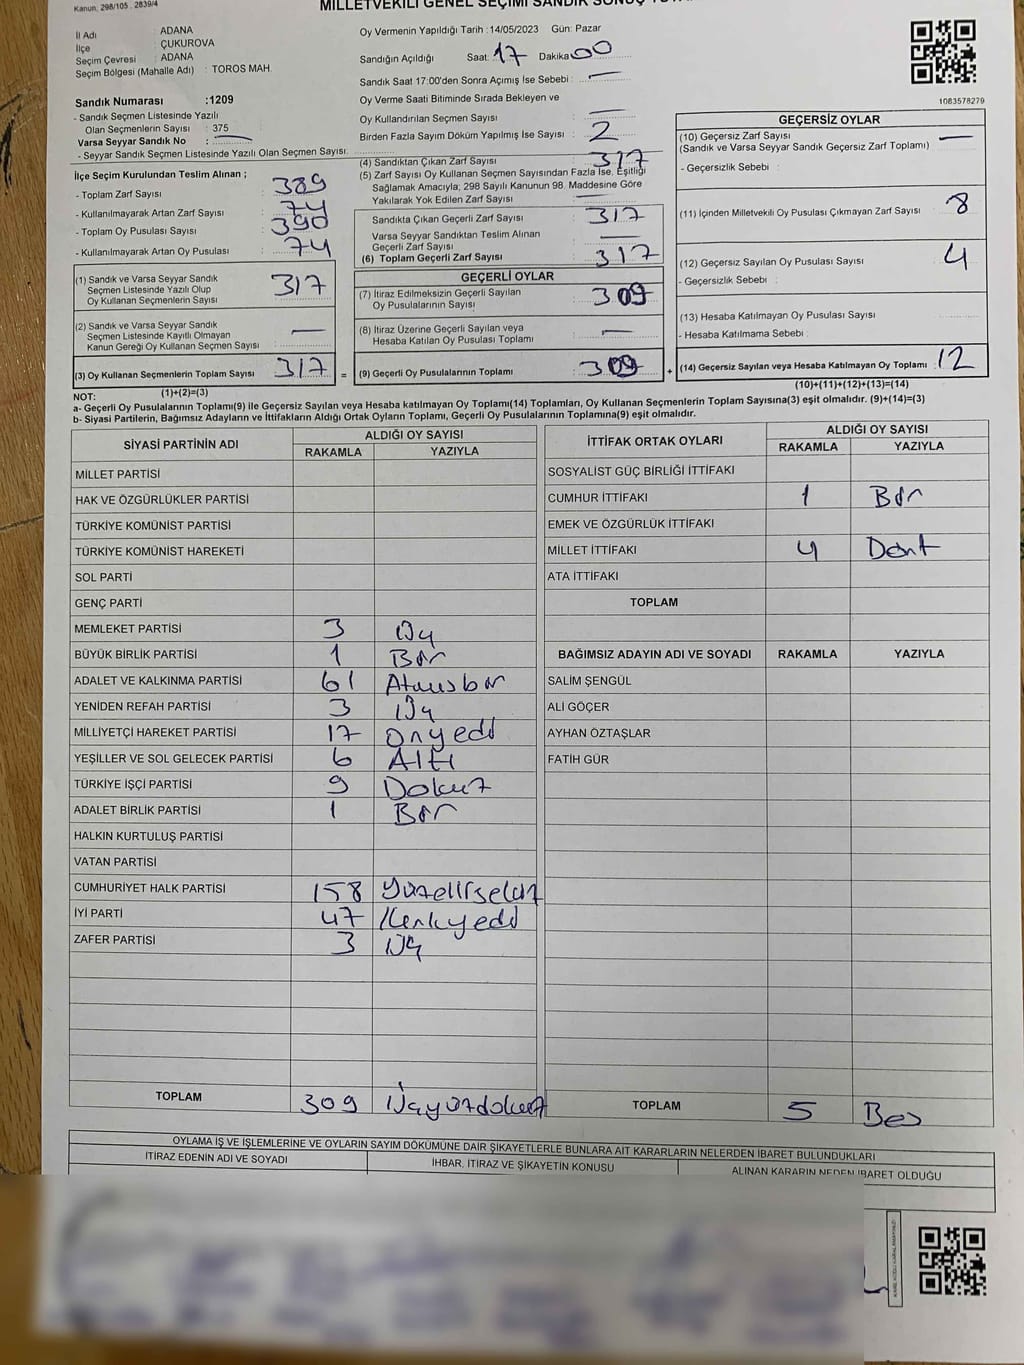 Kanun: 298/105 . 2839/4
MİLLETVEKİLİ GENEL SEÇİMİ SANDIK SONUÇ
İl Adı : ADANA
İlçe : ÇUKUROVA
Seçim Çevresi : ADANA
Seçim Bölgesi (Mahalle Adı) : TOROS MAH.
Oy Vermenin Yapıldığı Tarih : 14/05/2023 Gün: Pazar
Sandığın Açıldığı Saat: 17 Dakika 00
Sandık Saat 17:00'den Sonra Açımış İse Sebebi : —
Oy Verme Saati Bitiminde Sırada Bekleyen ve
Oy Kullandırılan Seçmen Sayısı : —
Birden Fazla Sayım Döküm Yapılmış İse Sayısı : 2
1083578279
Sandık Numarası :1209
- Sandık Seçmen Listesinde Yazılı
Olan Seçmenlerin Sayısı : 375
Varsa Seyyar Sandık No : —
- Seyyar Sandık Seçmen Listesinde Yazılı Olan Seçmen Sayısı:
İlçe Seçim Kurulundan Teslim Alınan ;
- Toplam Zarf Sayısı : 389
- Kullanılmayarak Artan Zarf Sayısı : 74
- Toplam Oy Pusulası Sayısı : 390
- Kullanılmayarak Artan Oy Pusulası : 74
(1) Sandık ve Varsa Seyyar Sandık
Seçmen Listesinde Yazılı Olup
Oy Kullanan Seçmenlerin Sayısı : 317
(2) Sandık ve Varsa Seyyar Sandık
Seçmen Listesinde Kayıtlı Olmayan
Kanun Gereği Oy Kullanan Seçmen Sayısı : —
(3) Oy Kullanan Seçmenlerin Toplam Sayısı : 317 =
(1)+(2)=(3)
(4) Sandıktan Çıkan Zarf Sayısı : 317
(5) Zarf Sayısı Oy Kullanan Seçmen Sayısından Fazla İse, Eşitliği
Sağlamak Amacıyla; 298 Sayılı Kanunun 98. Maddesine Göre
Yakılarak Yok Edilen Zarf Sayısı : —
Sandıkta Çıkan Geçerli Zarf Sayısı : 317
Varsa Seyyar Sandıktan Teslim Alınan
Geçerli Zarf Sayısı : —
(6) Toplam Geçerli Zarf Sayısı : 317
GEÇERLİ OYLAR
(7) İtiraz Edilmeksizin Geçerli Sayılan
Oy Pusulalarının Sayısı : 309
(8) İtiraz Üzerine Geçerli Sayılan veya
Hesaba Katılan Oy Pusulası Toplamı : —
(9) Geçerli Oy Pusulalarının Toplamı : 309 +
GEÇERSİZ OYLAR
(10) Geçersiz Zarf Sayısı : —
(Sandık ve Varsa Seyyar Sandık Geçersiz Zarf Toplamı)
- Geçersizlik Sebebi :
(11) İçinden Milletvekili Oy Pusulası Çıkmayan Zarf Sayısı : 8
(12) Geçersiz Sayılan Oy Pusulası Sayısı : 4
- Geçersizlik Sebebi :
(13) Hesaba Katılmayan Oy Pusulası Sayısı :
- Hesaba Katılmama Sebebi :
(14) Geçersiz Sayılan veya Hesaba Katılmayan Oy Toplamı : 12
(10)+(11)+(12)+(13)=(14)
NOT:
a- Geçerli Oy Pusulalarının Toplamı(9) ile Geçersiz Sayılan veya Hesaba katılmayan Oy Toplamı(14) Toplamları, Oy Kullanan Seçmenlerin Toplam Sayısına(3) eşit olmalıdır. (9)+(14)=(3)
b- Siyasi Partilerin, Bağımsız Adayların ve İttifakların Aldığı Ortak Oyların Toplamı, Geçerli Oy Pusulalarının Toplamına(9) eşit olmalıdır.
SİYASİ PARTİNİN ADI ALDIĞI OY SAYISI
RAKAMLA YAZIYLA
MİLLET PARTİSİ
HAK VE ÖZGÜRLÜKLER PARTİSİ
TÜRKİYE KOMÜNİST PARTİSİ
TÜRKİYE KOMÜNİST HAREKETİ
SOL PARTİ
GENÇ PARTİ
MEMLEKET PARTİSİ 3 Üç
BÜYÜK BİRLİK PARTİSİ 1 Bir
ADALET VE KALKINMA PARTİSİ 61 Atmışbir
YENİDEN REFAH PARTİSİ 3 Üç
MİLLİYETÇİ HAREKET PARTİSİ 17 Onyedi
YEŞİLLER VE SOL GELECEK PARTİSİ 6 Altı
TÜRKİYE İŞÇİ PARTİSİ 9 Dokuz
ADALET BİRLİK PARTİSİ 1 Bir
HALKIN KURTULUŞ PARTİSİ
VATAN PARTİSİ
CUMHURİYET HALK PARTİSİ 158 Yüzellisekiz
İYİ PARTİ 47 Kırkyedi
ZAFER PARTİSİ 3 Üç
TOPLAM 309 Üçyüzdokuz
İTTİFAK ORTAK OYLARI ALDIĞI OY SAYISI
RAKAMLA YAZIYLA
SOSYALİST GÜÇ BİRLİĞİ İTTİFAKI
CUMHUR İTTİFAKI 1 Bir
EMEK VE ÖZGÜRLÜK İTTİFAKI
MİLLET İTTİFAKI 4 Dört
ATA İTTİFAKI
TOPLAM
BAĞIMSIZ ADAYIN ADI VE SOYADI RAKAMLA YAZIYLA
SALİM ŞENGÜL
ALİ GÖÇER
AYHAN ÖZTAŞLAR
FATİH GÜR
TOPLAM 5 Beş
OYLAMA İŞ VE İŞLEMLERİNE VE OYLARIN SAYIM DÖKÜMÜNE DAİR ŞİKAYETLERLE BUNLARA AİT KARARLARIN NELERDEN İBARET BULUNDUKLARI
İTİRAZ EDENİN ADI VE SOYADI İHBAR, İTİRAZ VE ŞİKAYETİN KONUSU ALINAN KARARIN NEDEN İBARET OLDUĞU